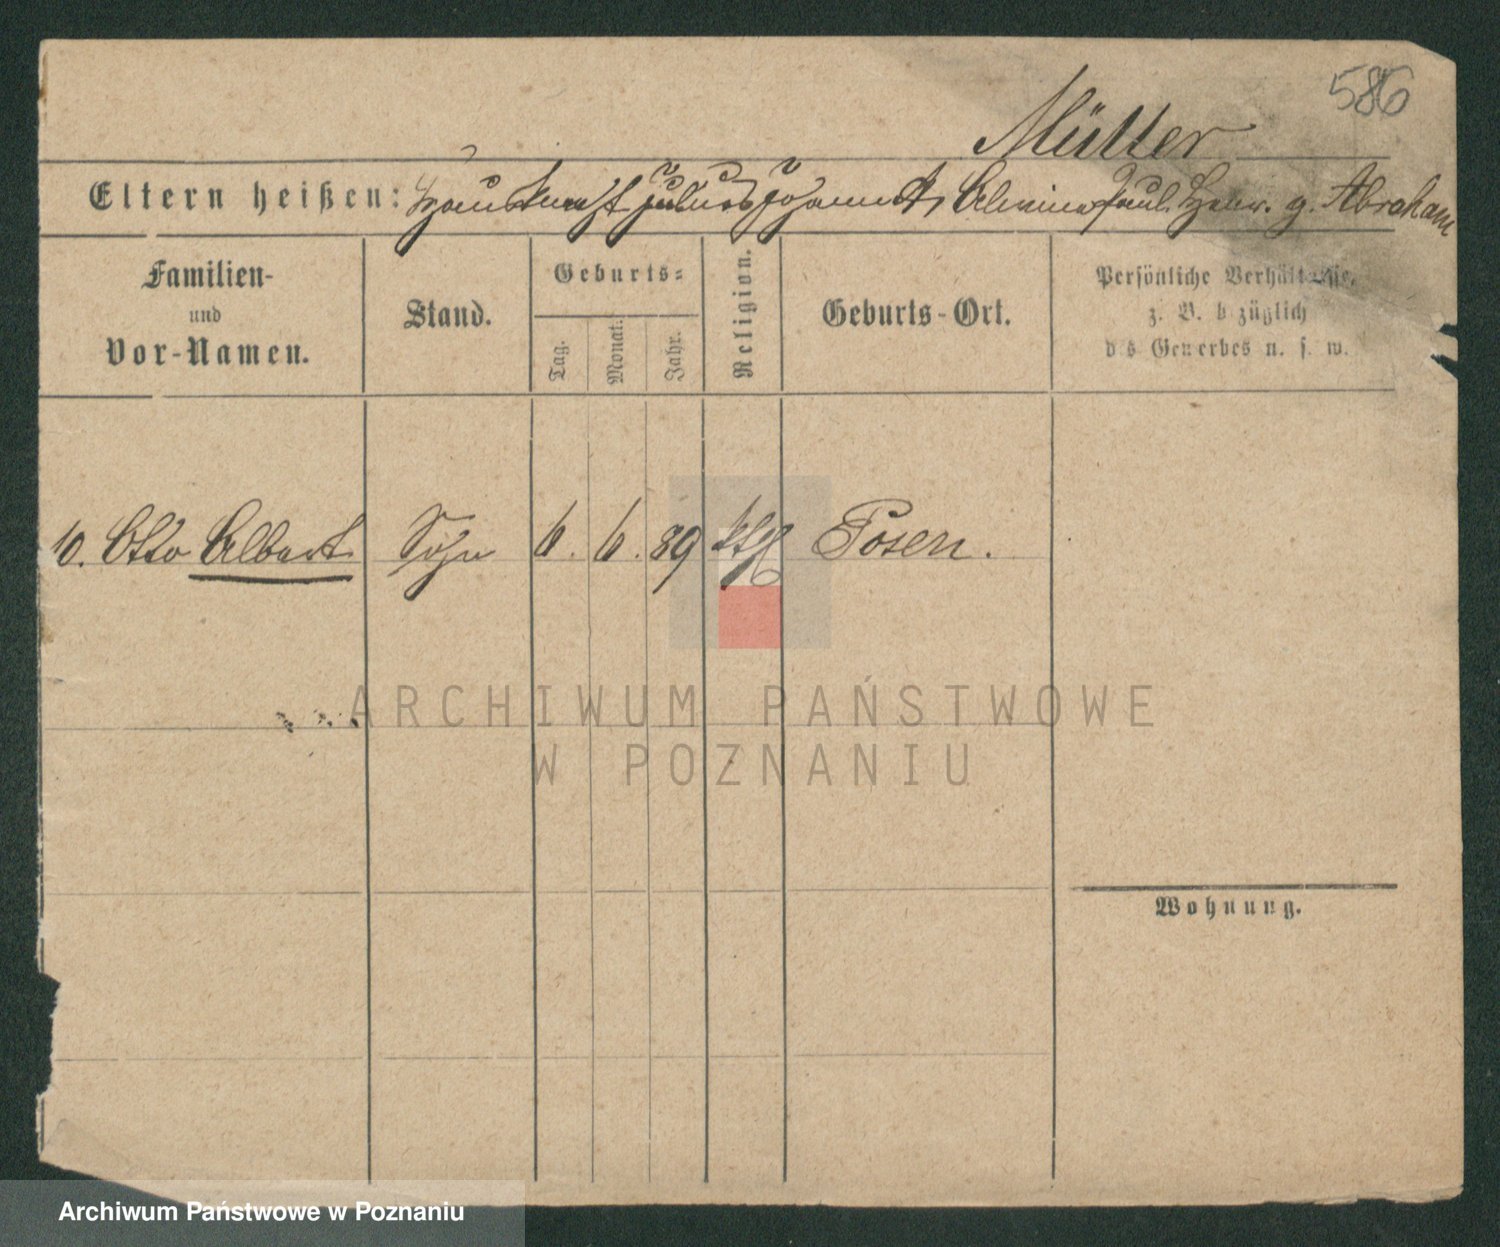 586
Müller
Eltern heißen: Julius Johann Alwine Paul. g. Abraham
Familien-
und
Vor-Namen.
Stand.
Geburts-
Tag.
Monat.
Jahr.
Religion.
Geburts-Ort.
Persönliche Verhältnisse,
z. B. bezüglich
des Gewerbes u. s. w.
10. Otto Albert Sohn 6. 6. 89 kth Posen.
ARCHIWUM PAŃSTWOWE
W POZNANIU
Wohnung.
Archiwum Państwowe w Poznaniu